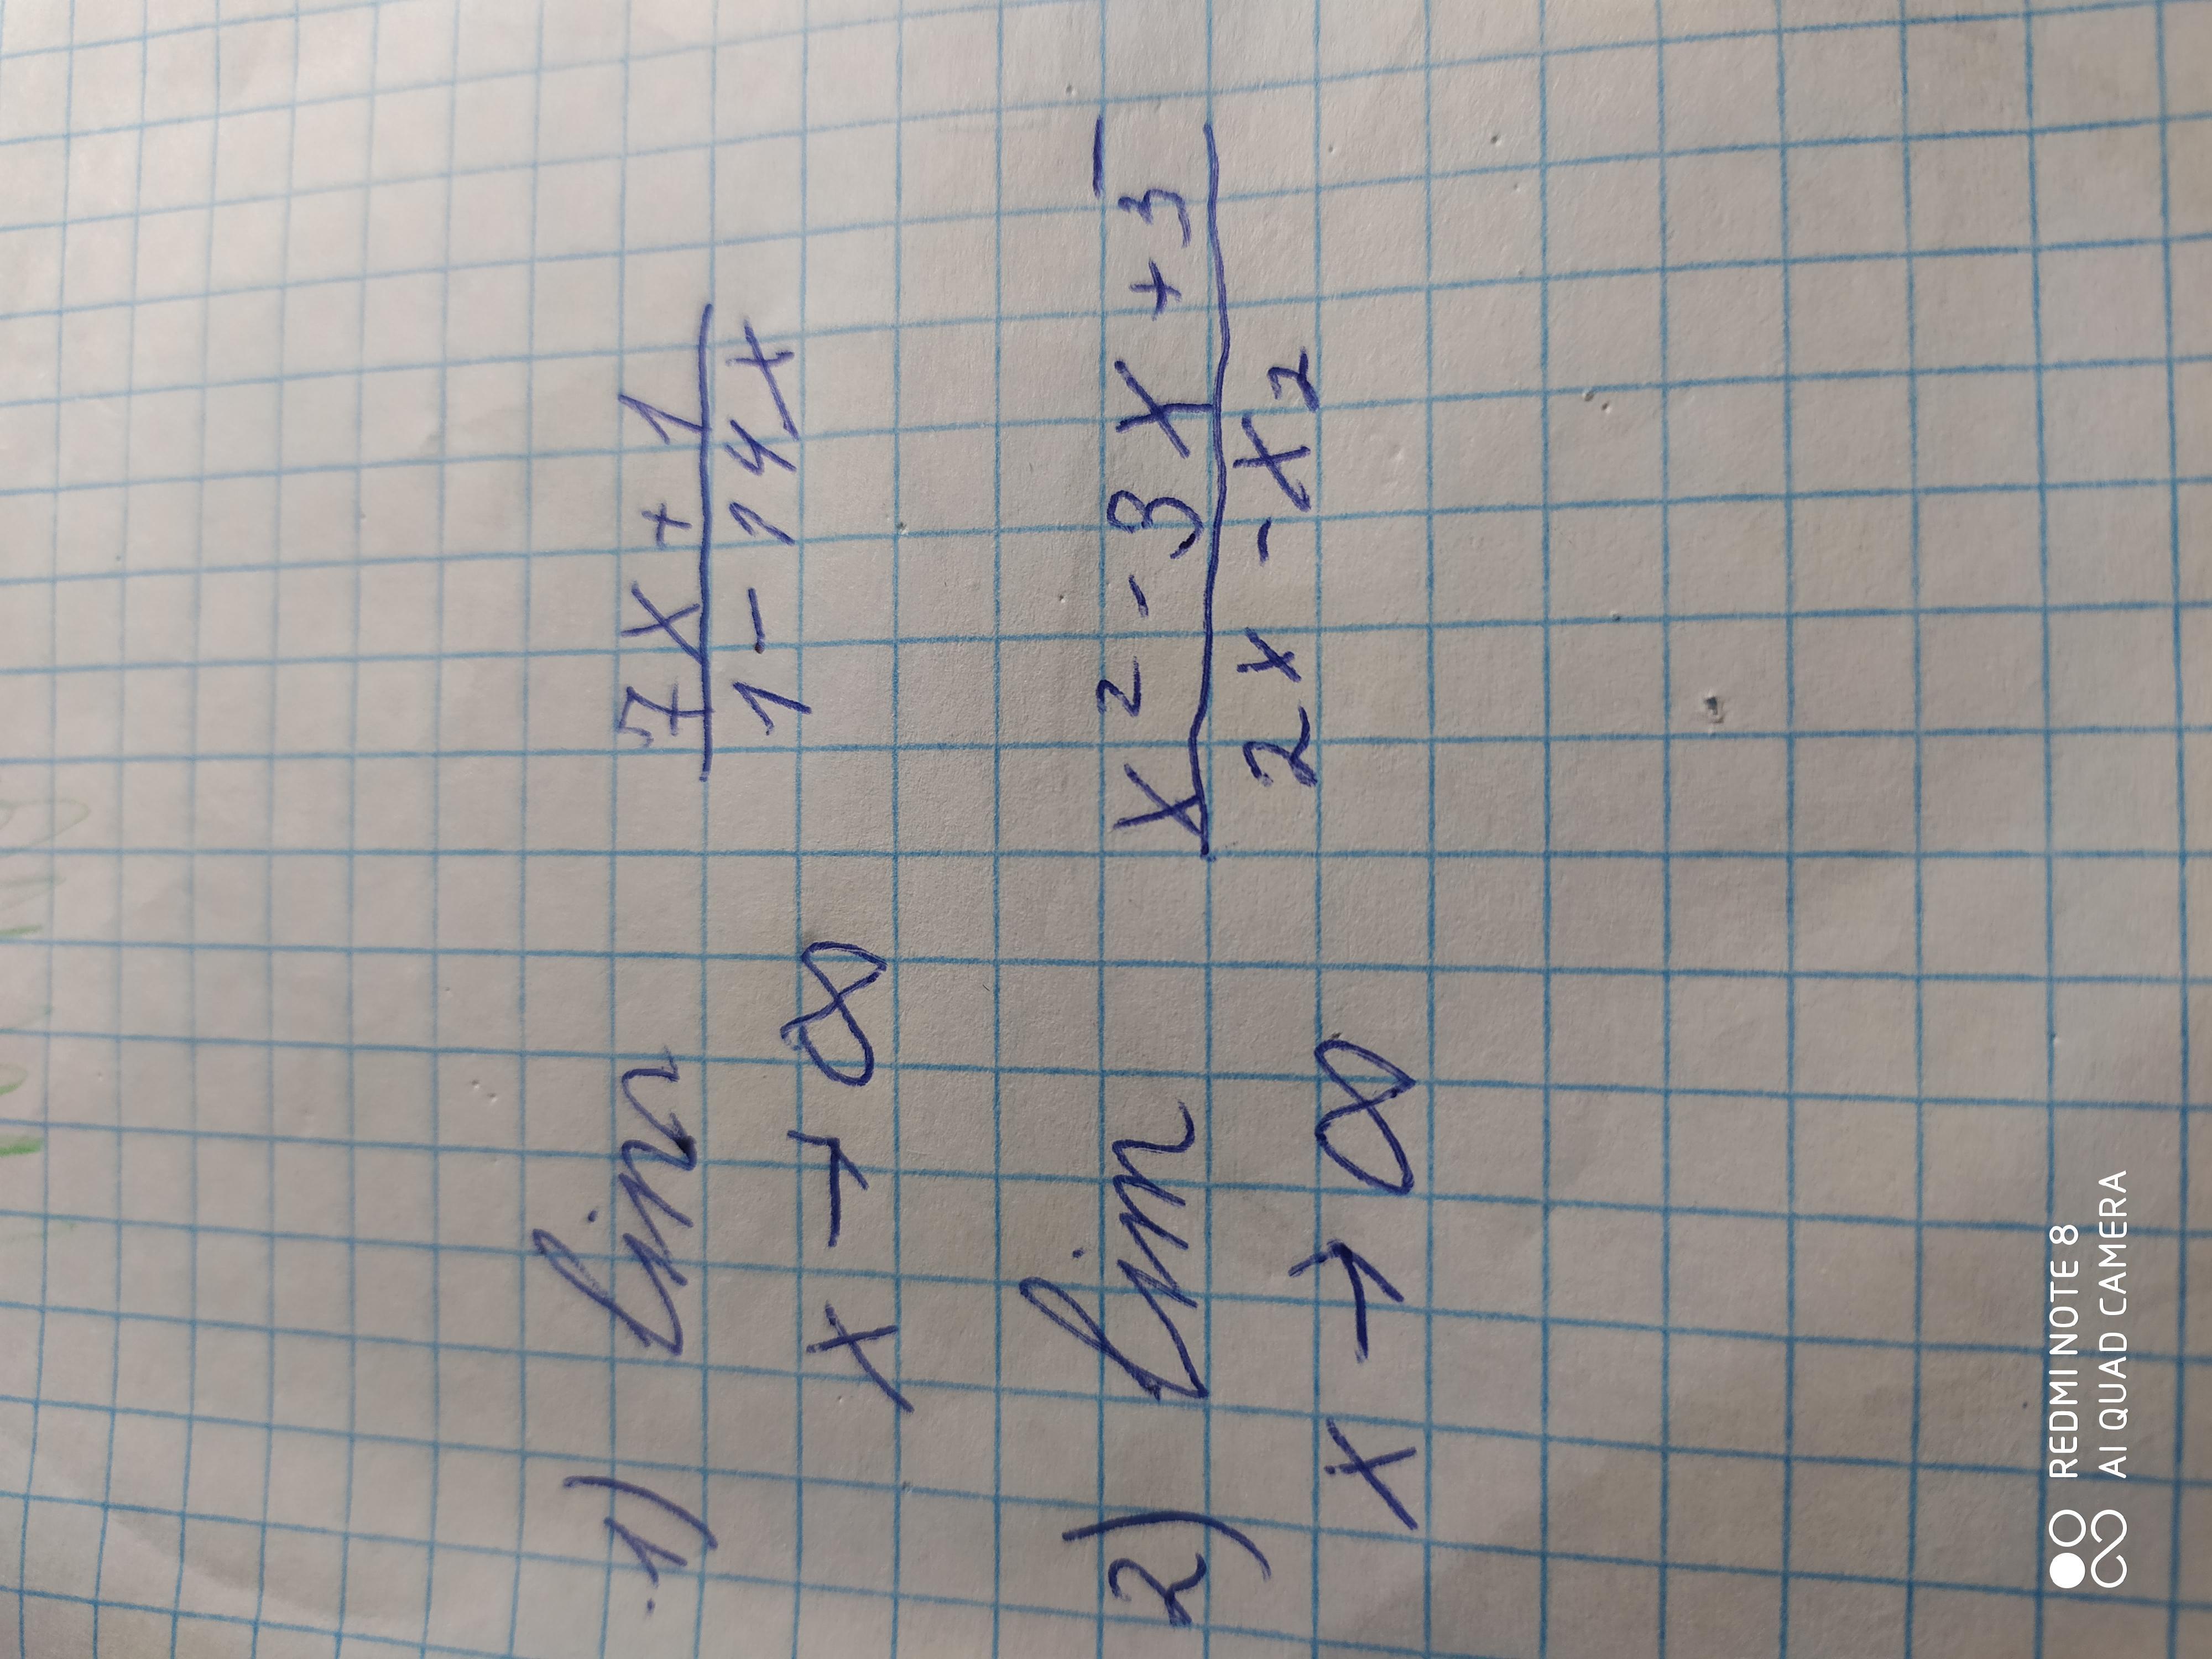 1) lim 7x + 1
x → ∞ 1 - 14x
2) lim x² - 3x + 5
x → ∞ 2x - x²
REDMI NOTE 8
AI QUAD CAMERA